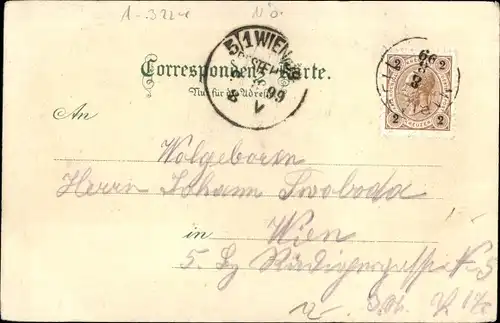 1-322
Nö.
5/1 WIEN
99
V
Correspondenz-Karte.
Nur für die Adresse.
99
8
2 2
2 KREUZER 2
An
Wolgeboren
Herrn Johann Swoboda
in Wien
5. Bz Rüdigergasse № 5